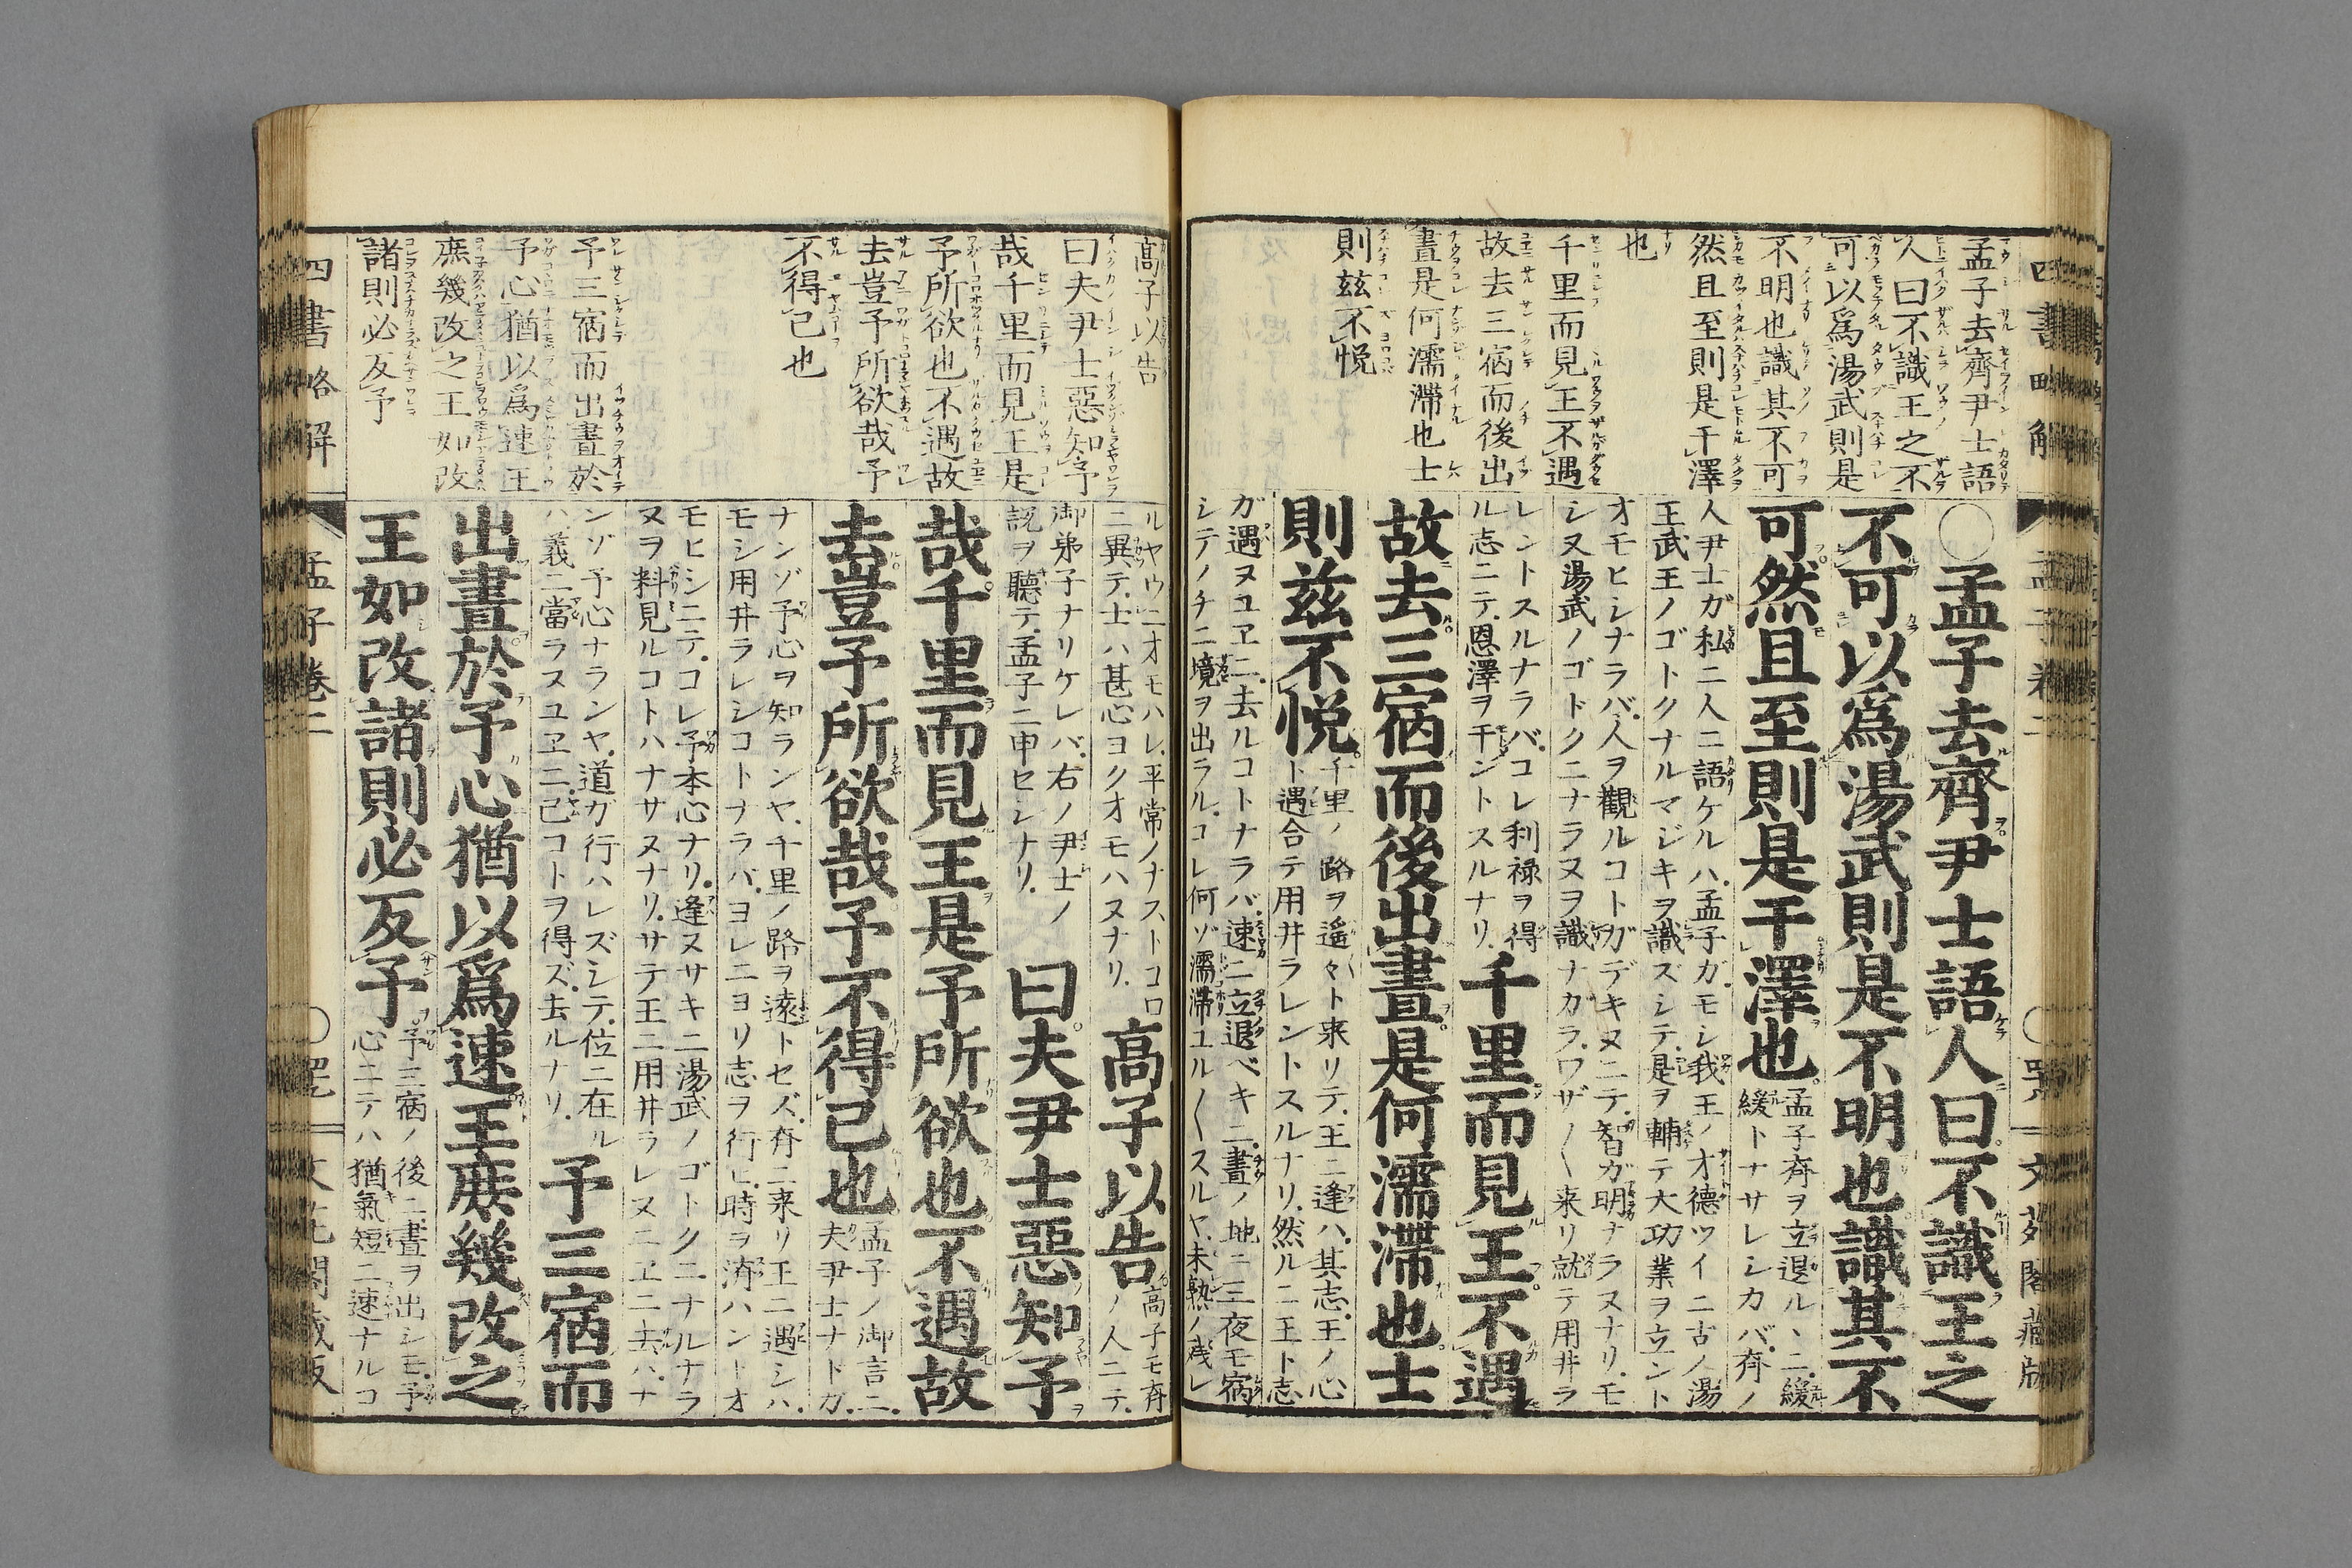 四書略解　孟子卷二　文苑閣藏版
孟子去齊尹士語
人曰不識王之不
可以爲湯武則是
不明也識其不可
然且至則是干澤
也
千里而見王不遇
故去三宿而後出
晝是何濡滯也士
則茲不悅
○孟子去齊尹士語人曰不識王之
不可以爲湯武則是不明也識其不
可然且至則是干澤也
孟子齊ヲ立退ル丶ニ緩
緩トナサレシカバ齊ノ
人尹士ガ私ニ人ニ語ケルハ孟子ガモシ我王ノ才德ツイニ古ノ湯
王武王ノゴトクナルマジキヲ識ズシテ是ヲ輔テ大功業ヲ立ント
オモヒシナラバ人ヲ觀ルコトガデキヌニテ智ガ明ナラヌナリモ
シ又湯武ノゴトクニナラヌヲ識ナカラワザ〱来リ就テ用井ラ
レントスルナラバコレ利禄ヲ得
ル志ニテ恩澤ヲ干ントスルナリ
千里而見王不遇
故去三宿而後出晝是何濡滯也士
則茲不悅
千里ノ路ヲ遙々ト来リテ王ニ逢ハ其志王ノ心
ト遇合テ用井ラレントスルナリ然ルニ王ト志
ガ遇ヌユヱニ去ルコトナラバ速ニ立退ベキニ晝ノ地ニ三夜モ宿
シテノチニ境ヲ出ラルコレ何ゾ濡滯ユル〱スルヤ未熟ノ残レ
高子以告
曰夫尹士惡知予
哉千里而見王是
予所欲也不遇故
去豈予所欲哉予
不得已也
予三宿而出晝於
予心猶以爲速王
庶幾改之王如改
諸則必反予
ルヤウニオモハレ平常ノナストコロ
ニ異テ士ハ甚心ヨクオモハヌナリ
高子以告
高子モ齊
ノ人ニテ
御弟子ナリケレバ右ノ尹士ノ
説ヲ聽テ孟子ニ申セシナリ
曰夫尹士惡知予
哉千里而見王是予所欲也不遇故
去豈予所欲哉予不得已也
孟子ノ御言ニ
夫尹士ナドガ
ナンゾ予心ヲ知ランヤ千里ノ路ヲ遠トセズ齊ニ来リ王ニ遇シハ
モシ用井ラレシコトナラバヨレニヨリ志ヲ行ヒ時ヲ濟ハントオ
モヒシニテコレ予本心ナリ逢ヌサキニ湯武ノゴトクニナルナラ
ヌヲ料見ルコトハナサヌナリサテ王ニ用井ラレヌユヱニ去ハナ
ンゾ予心ナランヤ道ガ行ハレズシテ位ニ在ル
ハ義ニ當ラヌユヱニ已コトヲ得ズ去ルナリ
予三宿而
出晝於予心猶以爲速王庶幾改之
王如改諸則必反予
予三宿ノ後ニ晝ヲ出シモ予
心ニテハ猶氣短ニ速ナルコ
四書略解　孟子卷二　文苑閣藏版